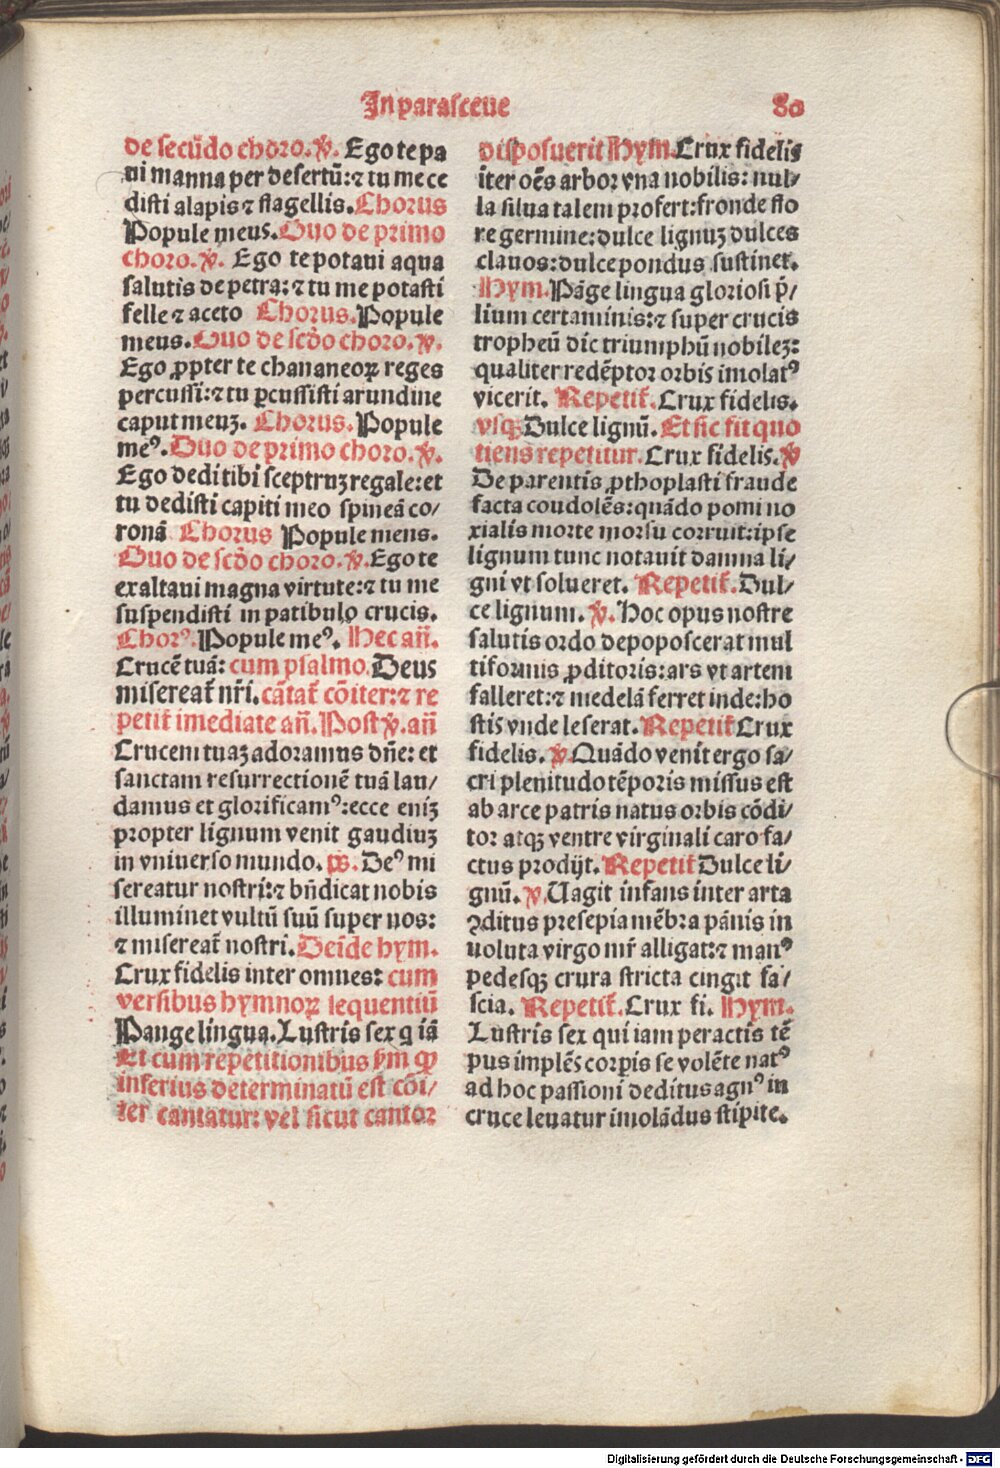 In parasceue
80
de secūdo choro. ℣. Ego te pa
ui manna per desertū: ⁊ tu me ce
disti alapis ⁊ flagellis. Chorus
Popule meus. Duo de primo
choro. ℣. Ego te potaui aqua
salutis de petra: ⁊ tu me potasti
felle ⁊ aceto Chorus. Popule
meus. Duo de scḋo choro. ℣.
Ego ꝓpter te chananeoꝝ reges
percussi: ⁊ tu ꝑcussisti arundine
caput meuꝫ. Chorus. Popule
meꝰ. Duo de primo choro. ℣.
Ego dedi tibi sceptruꝫ regale: et
tu dedisti capiti meo spineā co/
ronā Chorus Popule meus.
Duo de scḋo choro. ℣. Ego te
exaltaui magna virtute: ⁊ tu me
suspendisti in patibulo crucis.
Chorꝰ. Popule meꝰ. Hec añ.
Crucē tuā: cum psalmo. Deus
misereat̄ nr̄i. cātat̄ cōiter: ⁊ re
petit̄ imediate añ. Post ℣. añ
Crucem tuaꝫ adoramus dñe: et
sanctam resurrectionē tuā lau/
damus et glorificamꝰ: ecce eniꝫ
propter lignum venit gaudiuꝫ
in vniuerso mundo. ps. Deꝰ mi
sereatur nostri: ⁊ bñdicat nobis
illuminet vultū suū super nos:
⁊ misereat̄ nostri. Deīde hym.
Crux fidelis inter omnes: cum
versibus hymnoꝝ sequentiū
Pange lingua. Lustris sex q iā
Et cum repetitionibus ẜm ꝙ
inferius determinatū est cōi/
ter cantatur: vel sicut cantor
disposuerit Hym. Crux fidelis
īter oēs arbor vna nobilis: nul/
la silua talem profert: fronde flo
re germine: dulce lignuꝫ dulces
clauos: dulce pondus sustinet.
Hym. Pāge lingua gloriosi p̄/
lium certaminis: ⁊ super crucis
tropheū dic triumphū nobileꝫ:
qualiter redēptor orbis imolatꝰ
vicerit. Repetit̄. Crux fidelis.
vsqꝫ Dulce lignū. Et sic fit quo
tiens repetitur. Crux fidelis. ℣
De parentis ꝓthoplasti fraude
facta condolēs: quādo pomi no
xialis morte morsu corruit: ipse
lignum tunc notauit damna li/
gni vt solueret. Repetit̄. Dul/
ce lignum. ℣. Hoc opus nostre
salutis ordo depoposcerat mul
tiformis ꝓditoris: ars vt artem
falleret: ⁊ medelā ferret inde: ho
stis vnde leserat. Repetit̄ Crux
fidelis. ℣ Quādo venit ergo sa/
cri plenitudo tēporis missus est
ab arce patris natus orbis cōdi/
tor atqꝫ ventre virginali caro fa/
ctus prodijt. Repetit̄ Dulce li/
gnū. ℣. Uagit infans inter arta
ꝯditus presepia mēbra pānis in
uoluta virgo mr̄ alligat: ⁊ manꝰ
pedesqꝫ crura stricta cingit fa/
scia. Repetit̄. Crux fi. Hym.
Lustris sex qui iam peractis tē
pus implēs corꝑis se volēte natꝰ
ad hoc passioni deditus agnꝰ in
cruce leuatur imolādus stipite.
Digitalisierung gefördert durch die Deutsche Forschungsgemeinschaft - DFG